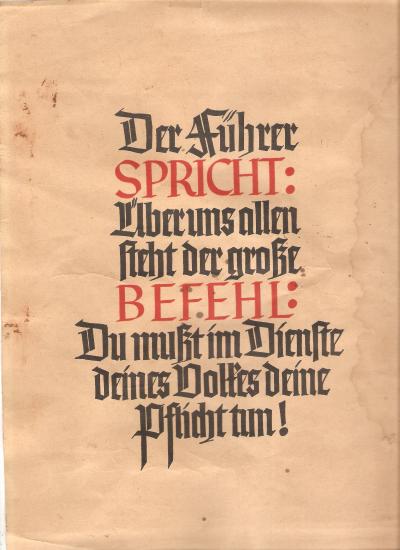 Der Führer
SPRICHT:
Über uns allen
steht der große
BEFEHL:
Du mußt im Dienste
deines Volkes deine
Pflicht tun!